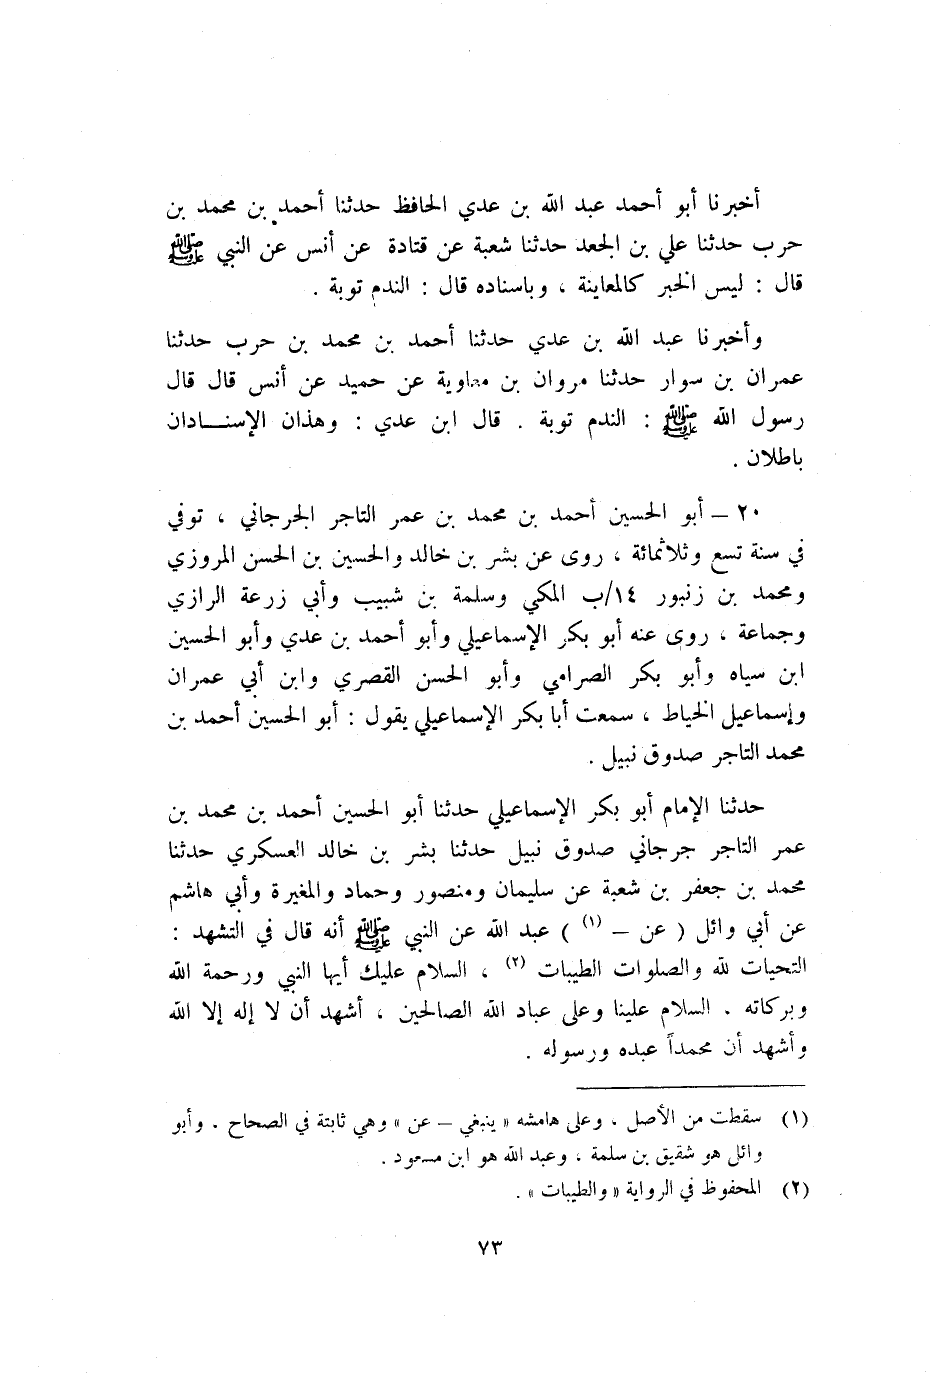 أخبرنا أبو أحمد عبد الله بن عدي الحافظ حدثنا أحمد بن محمد بن
حرب حدثنا علي بن الجعد حدثنا شعبة عن قتادة عن أنس عن النبي ﷺ
قال : ليس الخبر كالمعاينة ، وباسناده قال : الندم توبة .
وأخبرنا عبد الله بن عدي حدثنا أحمد بن محمد بن حرب حدثنا
عمران بن سوار حدثنا مروان بن معاوية عن حميد عن أنس قال قال
رسول الله ﷺ : الندم توبة . قال ابن عدي : وهذان الإسنــادان
باطلان .
٢٠ – أبو الحسين أحمد بن محمد بن عمر التاجر الجرجاني ، توفي
في سنة تسع وثلاثمائة ، روى عن بشر بن خالد والحسين بن الحسن المروزي
ومحمد بن زنبور ١٤/ب المكي وسلمة بن شبيب وأبي زرعة الرازي
وجماعة ، روى عنه أبو بكر الإسماعيلي وأبو أحمد بن عدي وأبو الحسين
ابن سياه وأبو بكر الصرامي وأبو الحسن القصري وابن أبي عمران
وإسماعيل الخياط ، سمعت أبا بكر الإسماعيلي يقول : أبو الحسين أحمد بن
محمد التاجر صدوق نبيل .
حدثنا الإمام أبو بكر الإسماعيلي حدثنا أبو الحسين أحمد بن محمد بن
عمر التاجر جرجاني صدوق نبيل حدثنا بشر بن خالد العسكري حدثنا
محمد بن جعفر بن شعبة عن سليمان ومنصور وحماد والمغيرة وأبي هاشم
عن أبي وائل ( عن – (١) ) عبد الله عن النبي ﷺ أنه قال في التشهد :
التحيات لله والصلوات الطيبات (٢) ، السلام عليك أيها النبي ورحمة الله
وبركاته . السلام علينا وعلى عباد الله الصالحين ، أشهد أن لا إله إلا الله
وأشهد أن محمداً عبده ورسوله .
(١) سقطت من الأصل ، وعلى هامشه « ينبغي – عن » وهي ثابتة في الصحاح . وأبو
وائل هو شقيق بن سلمة ، وعبد الله هو ابن مسعود .
(٢) المحفوظ في الرواية « والطيبات » .
٧٣